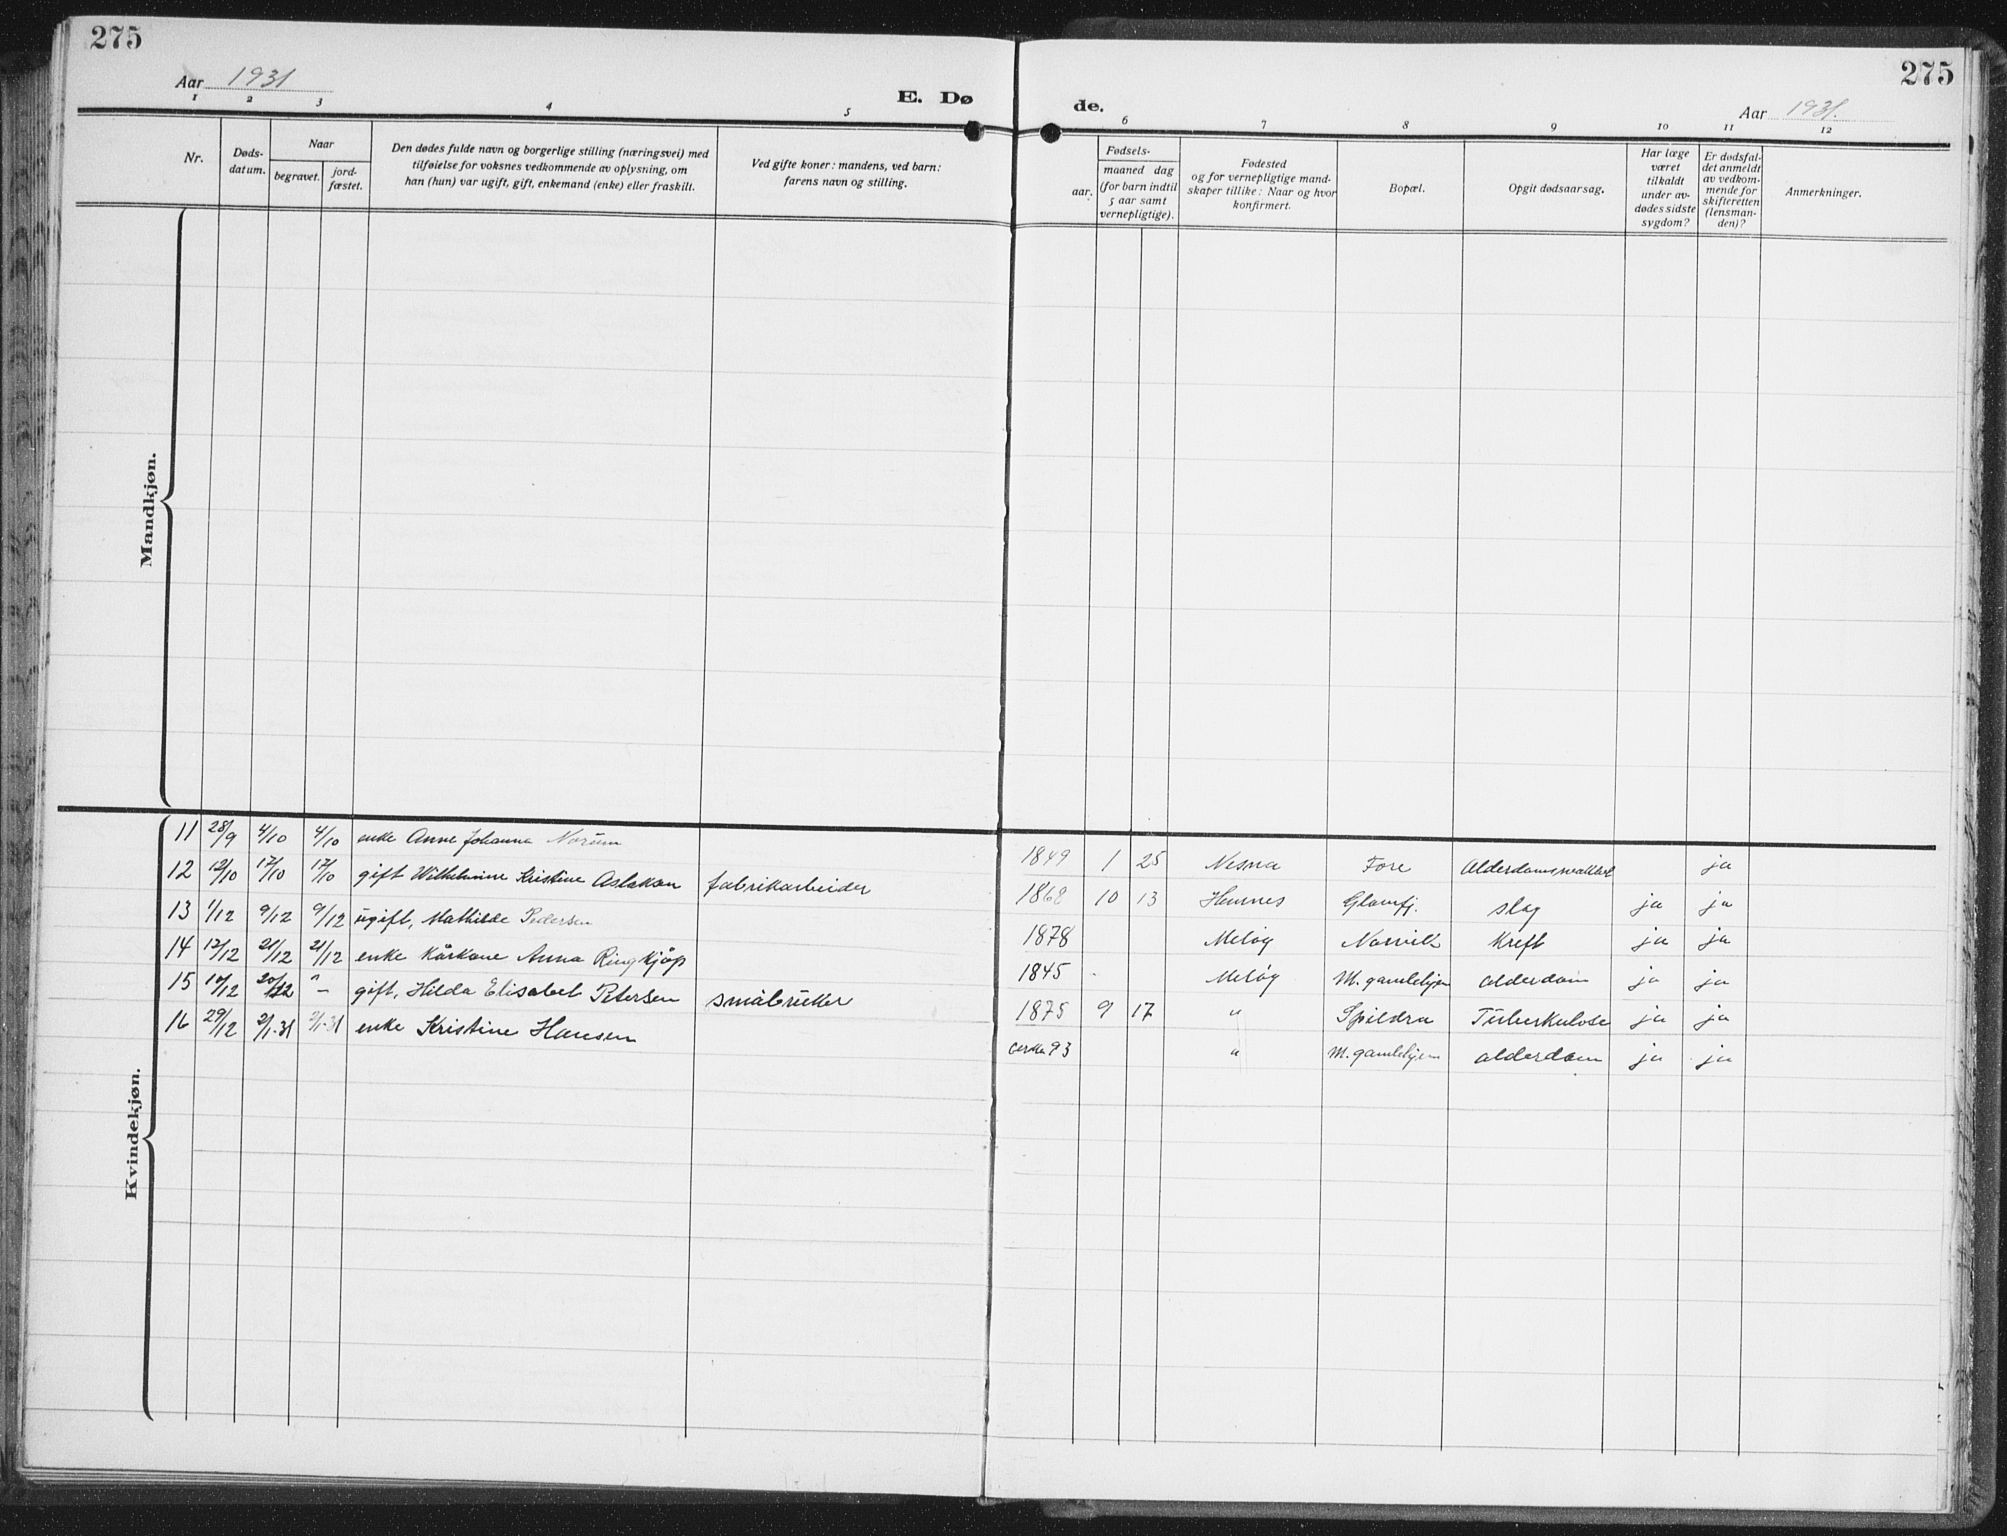 275
Aar 1931
E. Dø
1 2 3 4 5
Nr.
Døds-
datum.
Naar
begravet.
jord-
fæstet.
Den dødes fulde navn og borgerlige stilling (næringsvei) med
tilføielse for voksnes vedkommende av oplysning, om
han (hun) var ugift, gift, enkemand (enke) eller fraskilt.
Ved gifte koner: mandens, ved barn:
farens navn og stilling.
Mandkjøn.
Kvindekjøn.
11 28/9 4/10 4/10 enke Anne Johanna Norum
12 12/10 17/10 17/10 gift Wilhelmine Kristine Aslaksen fabrikarbeider
13 1/12 9/12 9/12 ugift, Mathilde Pedersen
14 12/12 21/12 21/12 enke Kårkone Anna Ringkjøp
15 10/12 20/12 " – gift, Hilda Elisabet Petersen småbruker
16 29/12 2/1-31 2/1-31 enke Kristine Hansen
275
de.
Aar 1931.
6 7 8 9 10 11 12
Fødsels-
aar.
maaned dag
(for barn indtil
5 aar samt
vernepligtige).
Fødested
og for vernepligtige mand-
skaper tillike: Naar og hvor
konfirmert.
Bopæl.
Opgit dødsaarsag.
Har læge
været
tilkaldt
under av-
dødes sidste
sygdom?
Er dødsfal-
det anmeldt
av vedkom-
mende for
skifteretten
(lensman-
den)?
Anmerkninger.
1849 1 25 Nesna Fore Alderdomssvakhet ja
1868 10 13 Hemnes Glomfj. slag ja ja
1878 Meløy Norvik Kreft ja ja
1845 Meløy M. gamlehjem alderdom ja ja
1875 9 17 " Spildra Tuberkulose ja ja
cirka 93 " M. gamlehjem alderdom ja ja